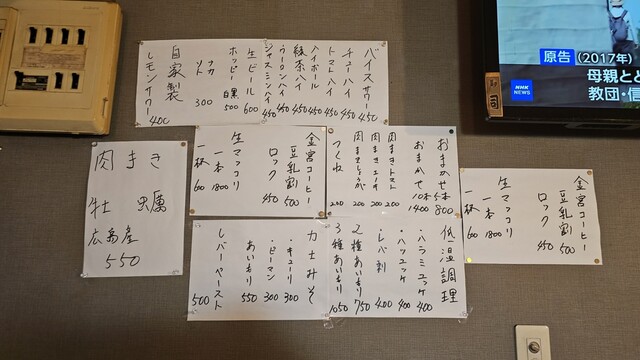 バイスサワー 450
チューハイ 450
トマトハイ 450
ハイボール 450
緑茶ハイ 450
ウーロンハイ 450
ジャスミンハイ 450
生ビール 600
ホッピー 白黒 500
ナカ
ソト 300
自家製
レモンサワー 400
おまかせ 5本 800
おまかせ 10本 1400
肉まきトマト 200
200
200
つくね 200
金宮コーヒー
豆乳割 500
ロック 450
生マッコリ
一本 1800
一杯 60
金宮コーヒー
豆乳割 500
ロック 450
生マッコリ
一本 1800
一杯 60
肉まき
牡蠣
広島産
550
低温調理
・ハラミユッケ 400
・ハツユッケ 400
・レバ刺 400
2種あいもり 750
3種あいもり 1050
力士みそ
・キューリ 300
・ピーマン 300
あいもり 550
レバーペースト 500
原告 (2017年)
母親とと
教団・信
NHK
NEWS